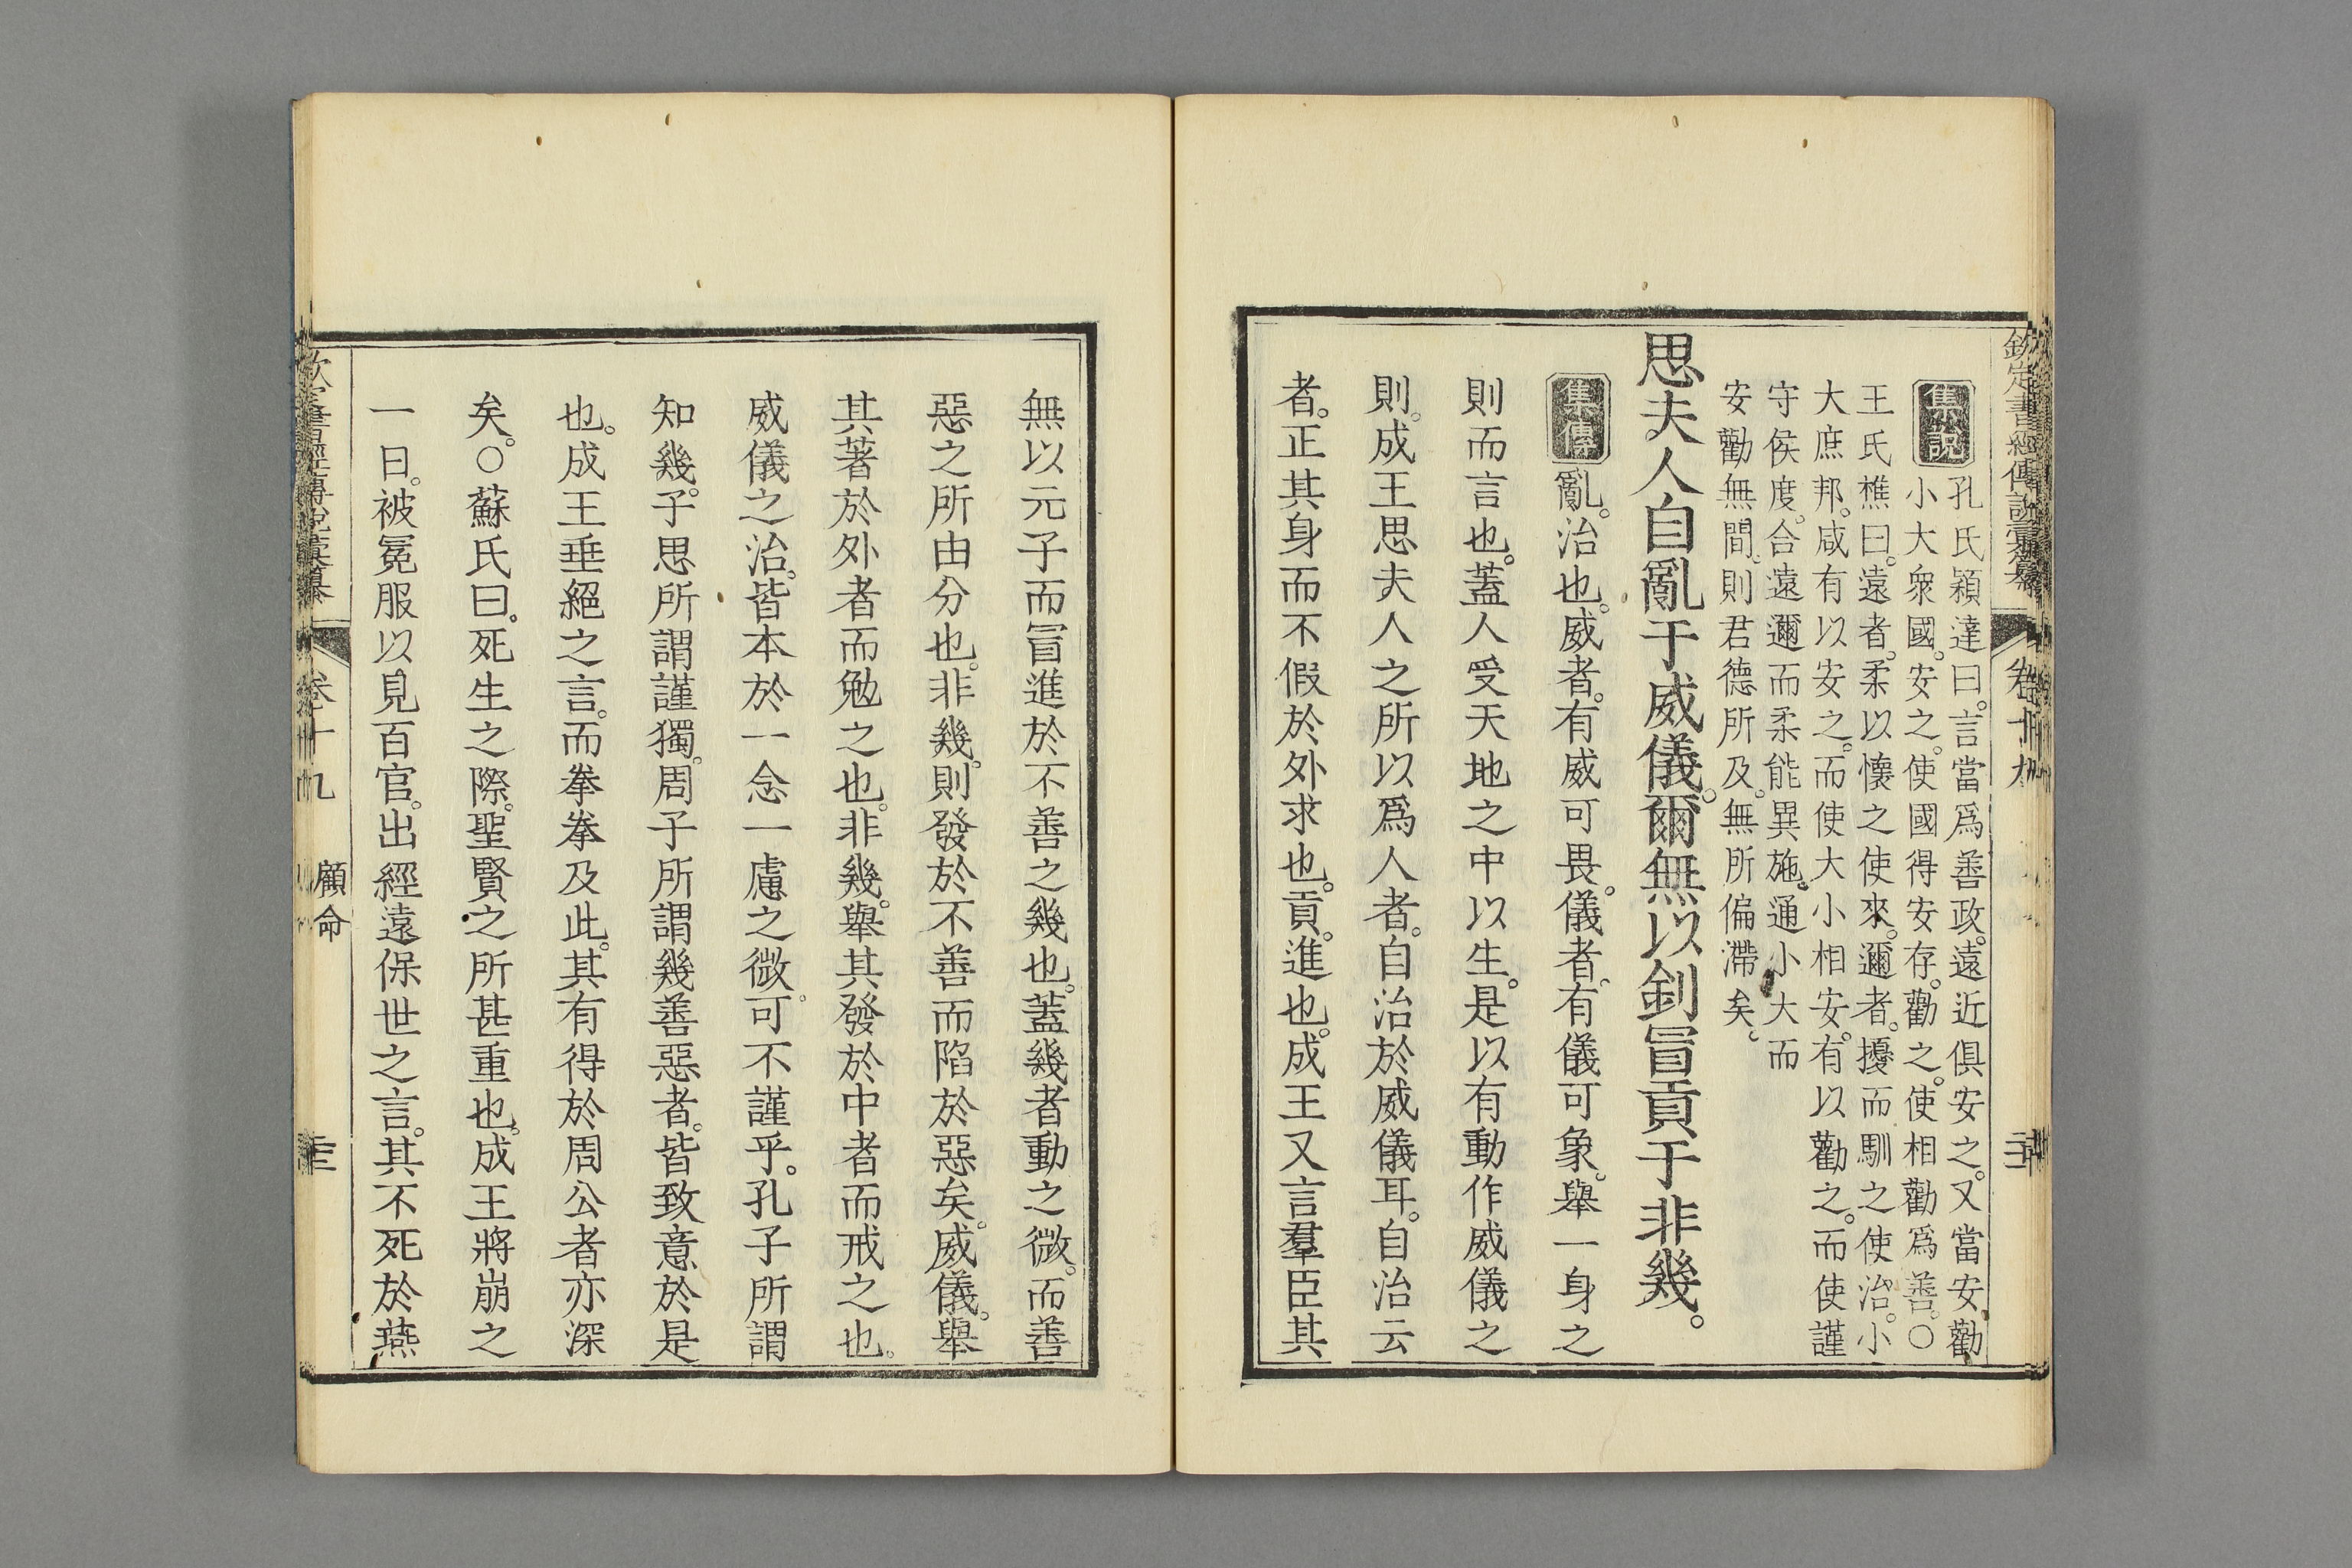 欽定書經傳說彙纂 卷十九
集說
孔氏穎達曰。言當爲善政。遠近俱安之。又當安勸
小大衆國。安之。使國得安存。勸之。使相勸爲善。○
王氏樵曰。遠者。柔以懷之使來。邇者。擾而馴之使治。小
大庶邦。咸有以安之。而使大小相安。有以勸之。而使謹
守侯度。合遠邇而柔能異施。通小大而
安勸無間。則君德所及。無所偏滯矣。
思夫人自亂于威儀。爾無以釗冒貢于非幾。
集傳
亂。治也。威者。有威可畏。儀者。有儀可象。舉一身之
則而言也。蓋人受天地之中以生。是以有動作威儀之
則。成王思夫人之所以爲人者。自治於威儀耳。自治云
者。正其身而不假於外求也。貢。進也。成王又言羣臣其
無以元子而冒進於不善之幾也。蓋幾者動之微。而善
惡之所由分也。非幾。則發於不善而陷於惡矣。威儀。舉
其著於外者而勉之也。非幾。舉其發於中者而戒之也。
威儀之治。皆本於一念一慮之微。可不謹乎。孔子所謂
知幾。子思所謂謹獨。周子所謂幾善惡者。皆致意於是
也。成王垂絕之言。而拳拳及此。其有得於周公者亦深
矣。○蘇氏曰。死生之際。聖賢之所甚重也。成王將崩之
一日。被冕服以見百官。出經遠保世之言。其不死於燕
欽定書經傳說彙纂 卷十九 顧命